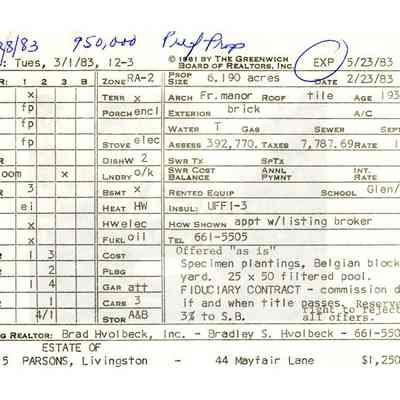 28/83 950,000 Pref Prop
: Tues, 3/1/83, 12-3 © 1981 BY THE GREENWICH BOARD OF REALTORS, INC. EXP 5/23/83
R: 1 2 3 B ZONE RA-2 PROP SIZE 6.190 acres DATE 2/23/83
x TERR x ARCH Fr.manor ROOF tile AGE 193
fp PORCH encl EXTERIOR brick A/C
fp WATER T GAS SEWER SEPT
x STOVE elec ASSESS 392,770. TAXES 7,787.69 RATE
DISHW 2 SWR TX SPTX
oom x LNDRY o/k SWR COST BALANCE ANNL PYMNT INT.
3 BSMT x RENTED EQUIP SCHOOL Glen/
ei HEAT HW INSUL: UFFI-3
HW elec HOW SHOWN appt w/listing broker
x FUEL oil TEL 661-5505
R 1 3 COST Offered "as is"
R 1 2 PLBG Specimen plantings, Belgian block
1 4 GAR att yard. 25 x 50 filtered pool.
R CARS 3 FIDUCIARY CONTRACT - commission d
4/1 STOR A&B if and when title passes. Reserve
3% to S.B. right to reject all offers.
G REALTOR: Brad Hvolbeck, Inc. - Bradley S. Hvolbeck - 661-550
ESTATE OF
5 PARSONS, Livingston - 44 Mayfair Lane $1,250